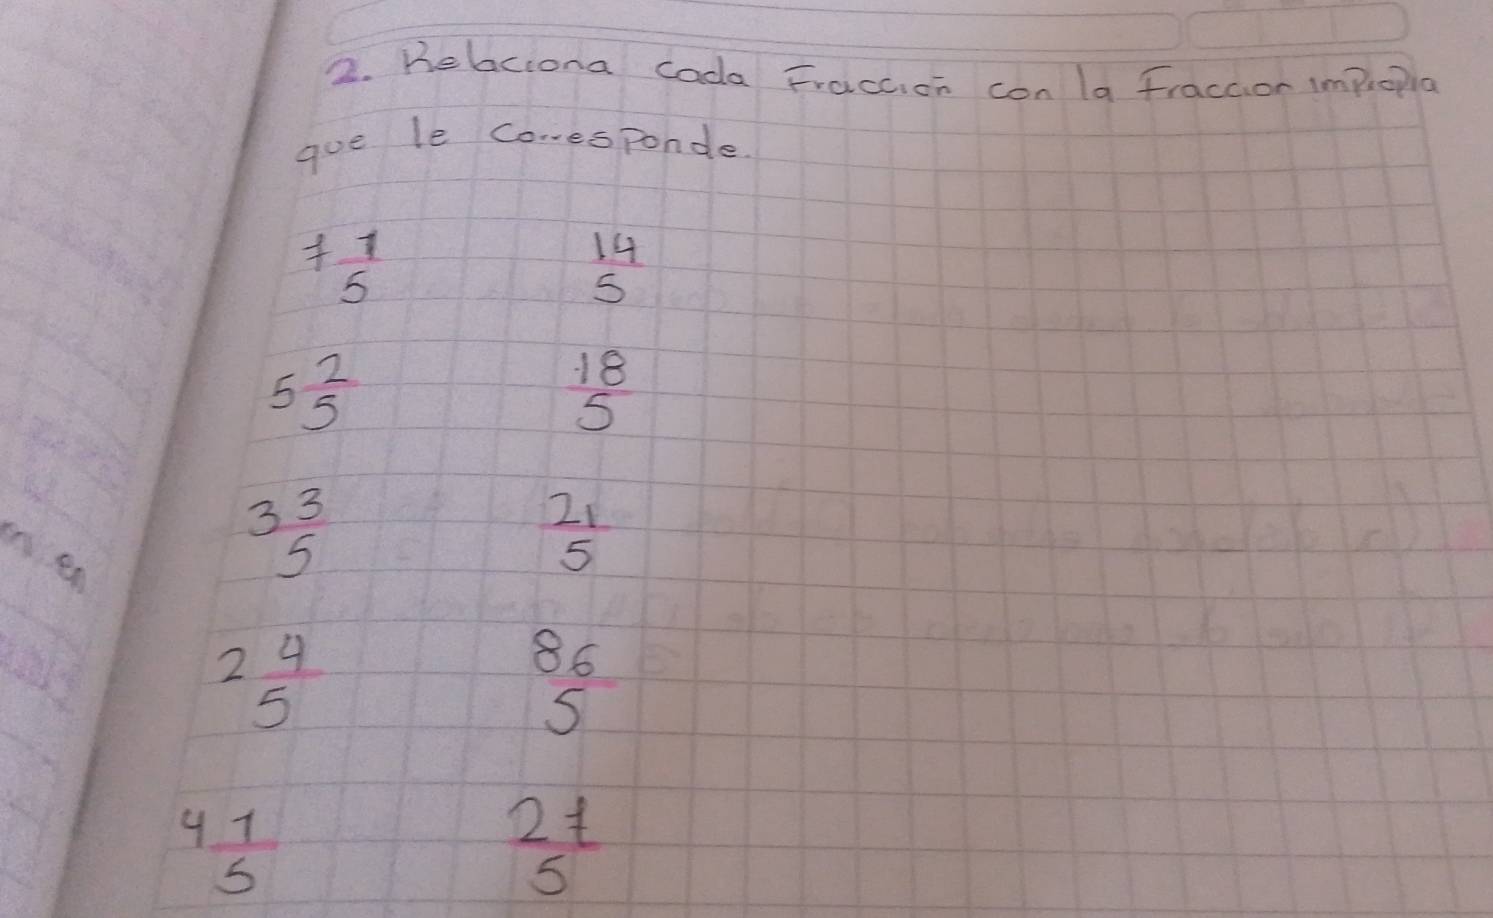 2. Relaciona cada Fracción con la fraccion impropia
que le corresponde.
7 1/5 14/5
5 2/5 18/5
3 3/5 21/5
2 4/5 86/5
4 1/5 27/5